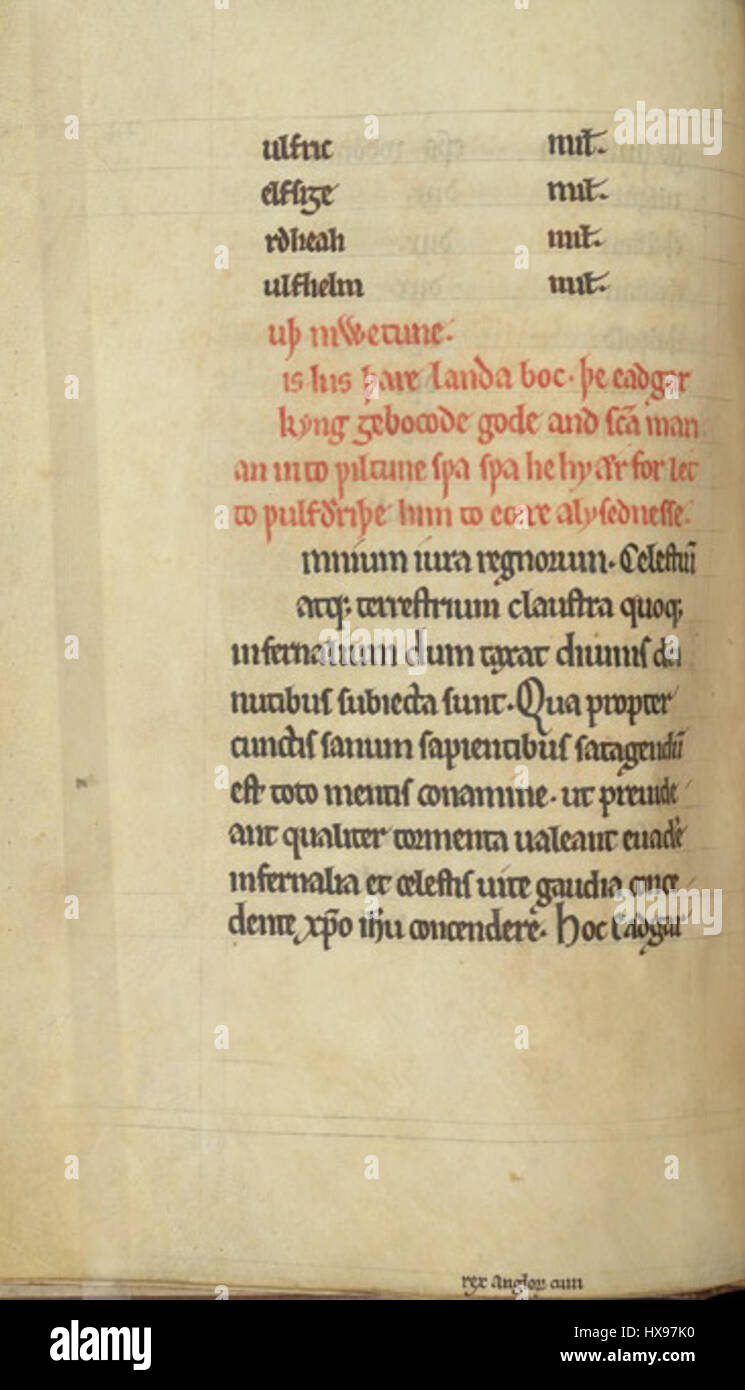 ulfric mit̄.
elfsige mit̄.
rdheah mit̄.
ulfhelm mit̄.
is his þare landa boc. þe eadgar
kyng gebocode gode and sc̄a man
an into piltune spa spa he hy ær for let
to pulfdriþe him to ecare alysednesse.
mnium iura regnorum. Celestiū
atq; terrestrium claustra quoq;
infernalium dum taxat diuinis dei
nutibus subiecta sunt. Qua propter
cunctis sanum sapientibus satagendū
est toto mentis conamine. ut preuide
ant qualiter tormenta ualeant euadere
infernalia et celestis uite gaudia conce
dente xp̄o ih̄u concendere. Hoc Eadgar
rex angloꝝ cum
alamy
HX97K0
www.alamy.com